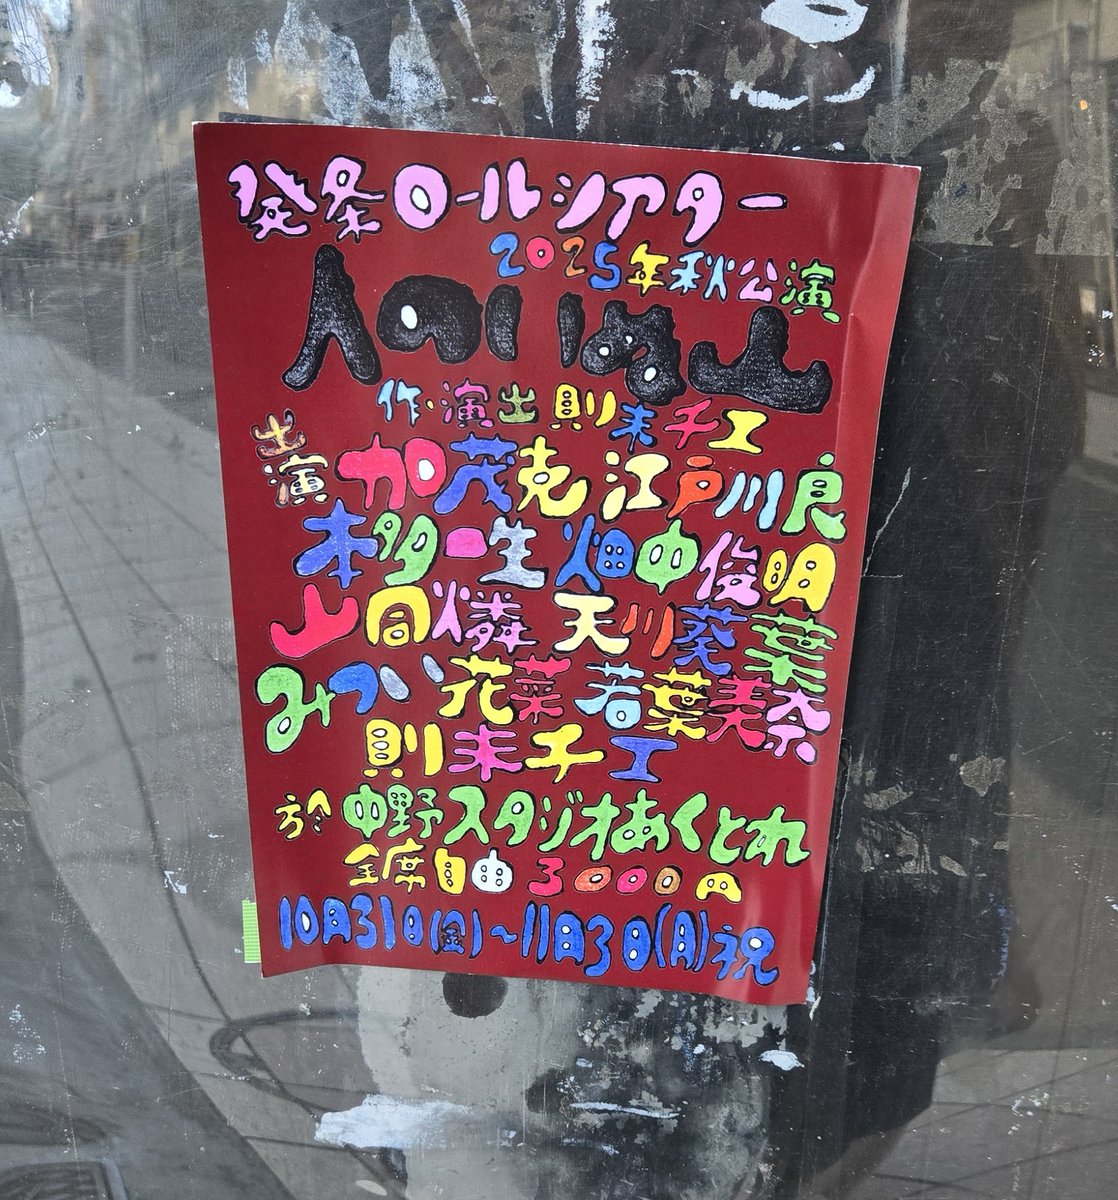 発条ロールシアター
2025年秋公演
人のいぬ山
作・演出 則末チエ
出演 加茂克 江戸川良
本多一生 畑中俊明
山同燐 天川葵葉
みつい花菜 若葉美奈
則末チエ
於 中野スタジオあくとれ
全席自由 3000円
10月31日(金)~11月3日(月)祝